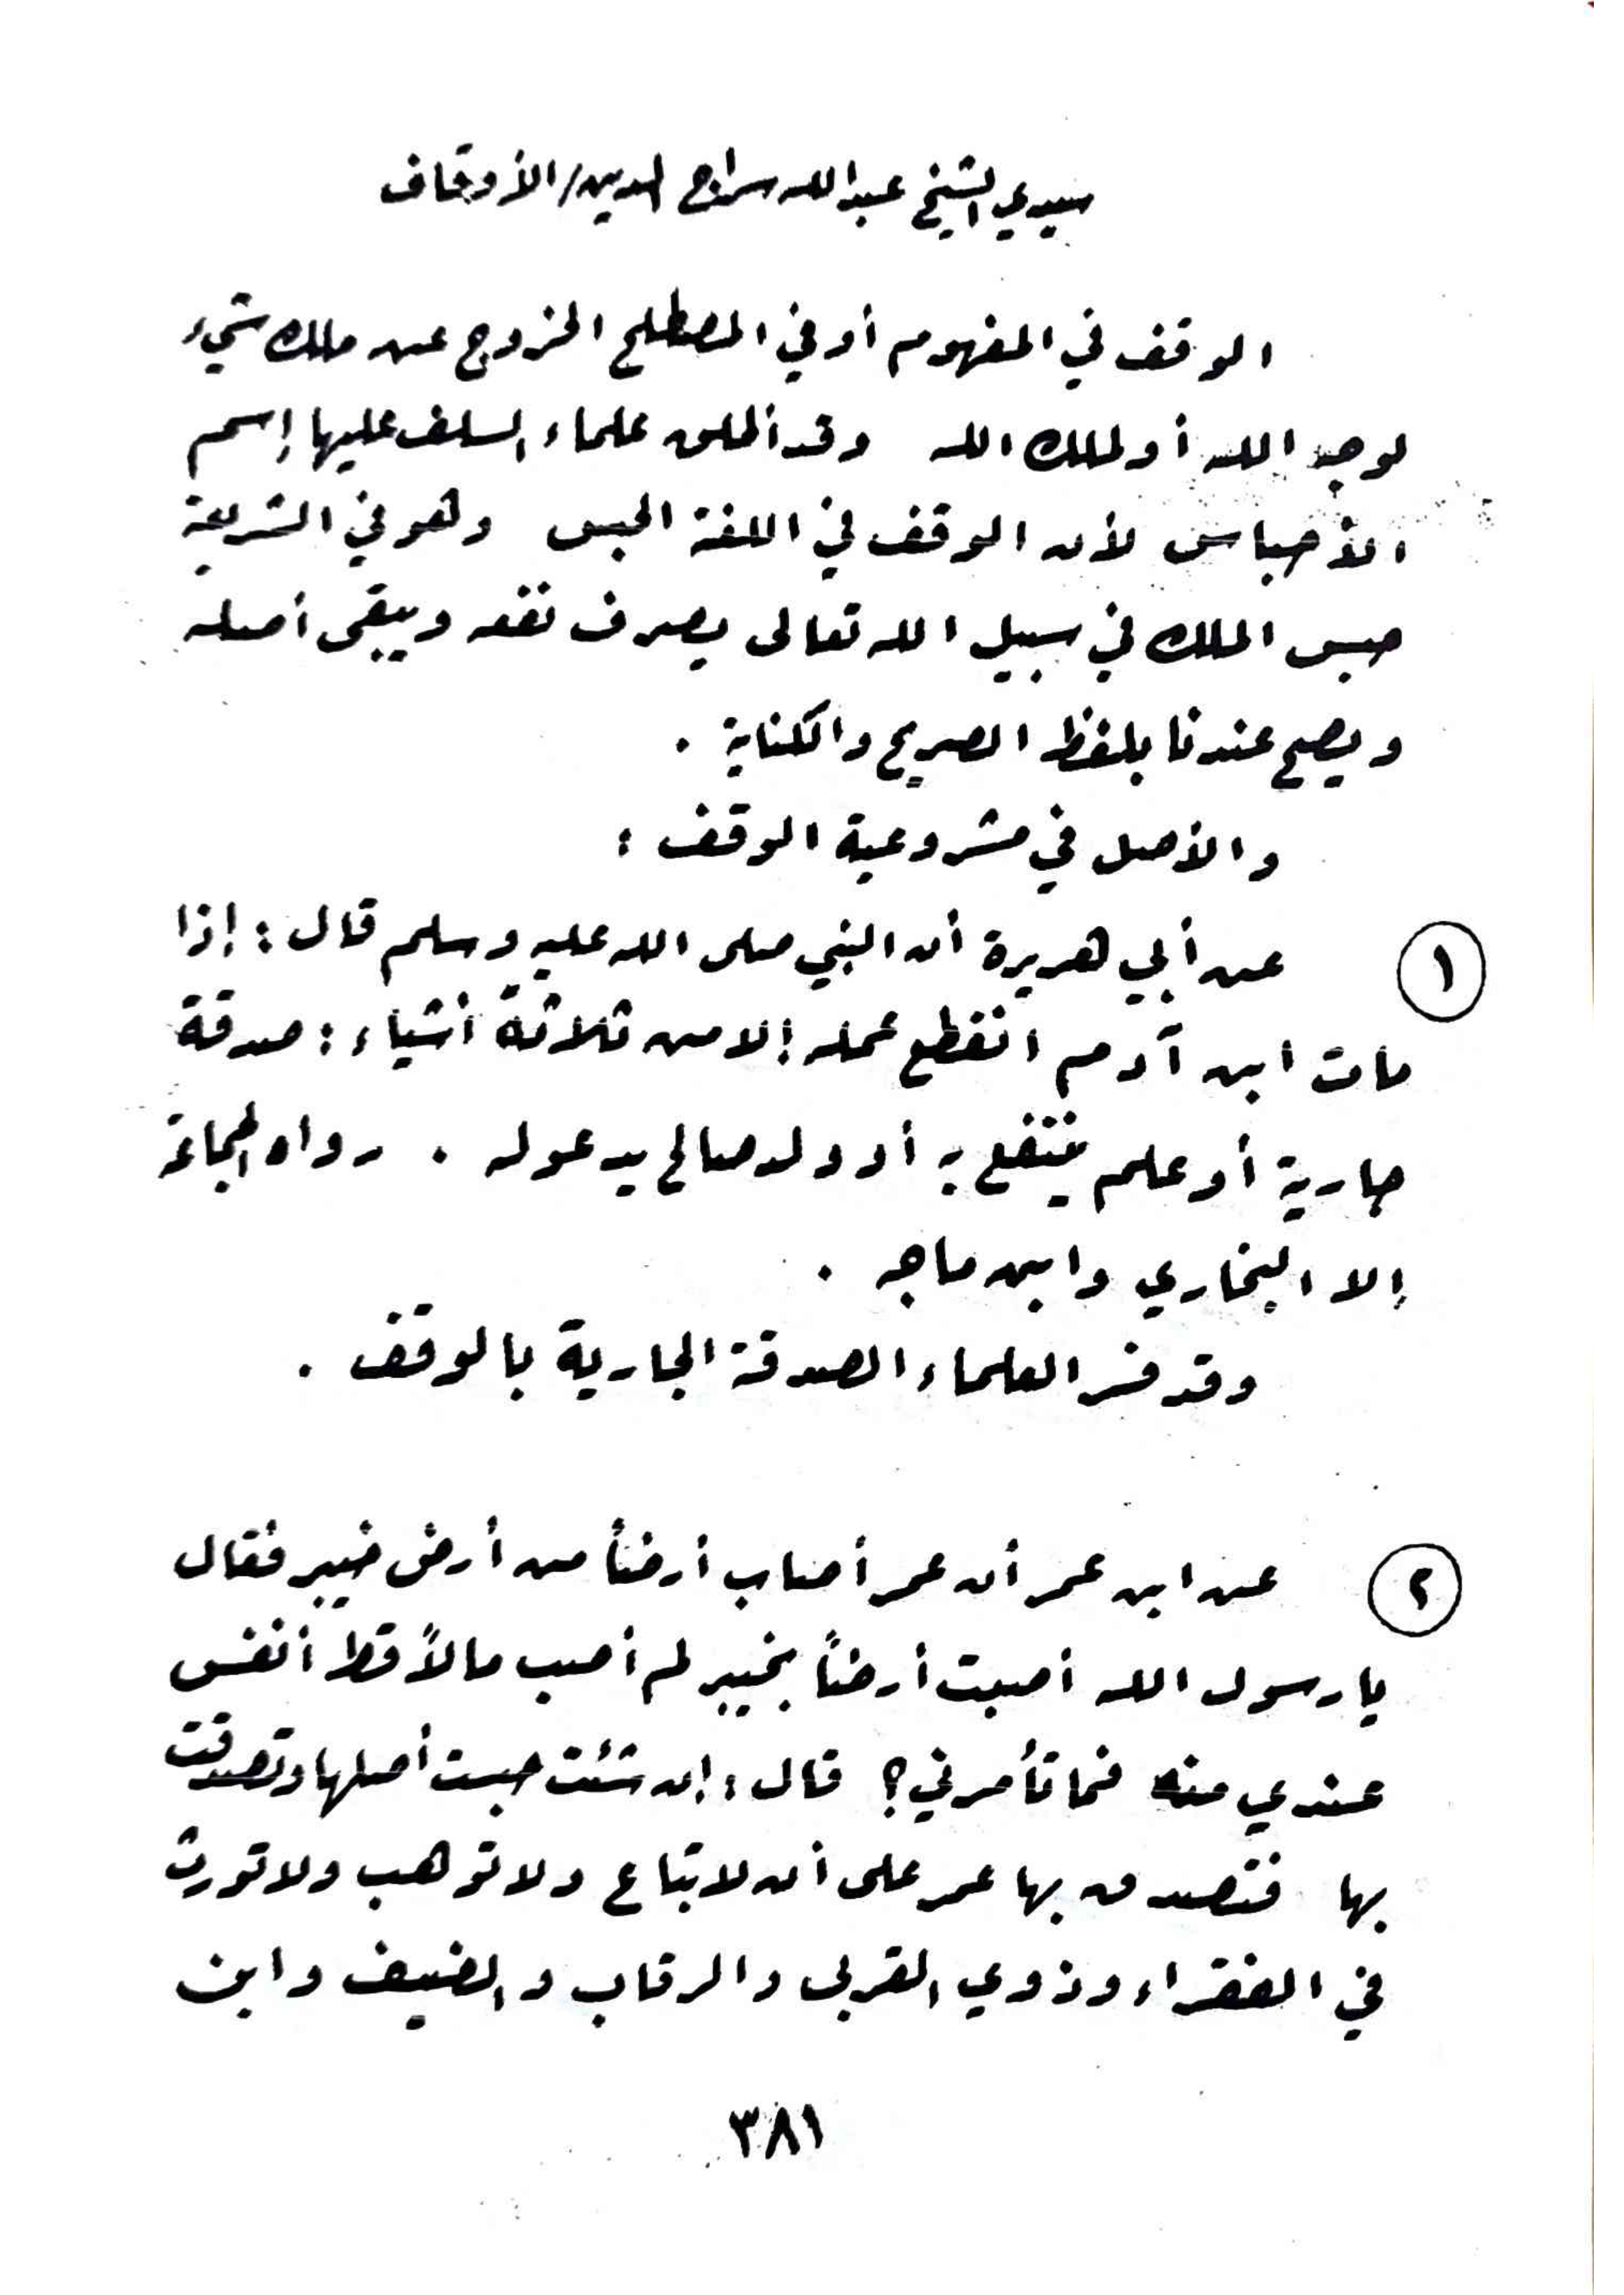 سيدي الشيخ عبد الله سراج الدين/الأوقاف
الوقف في المفهوم أو في المصطلح الخروج عن ملك شيء
لوجه الله أو لملك الله وقد أطلق علماء السلف عليها إسم
الأحباس لأن الوقف في اللغة الحبس وهو في الشريعة
حبس الملك في سبيل الله تعالى يصرف نفعه ويبقى أصله
ويصح عندنا بلفظ الصريح والكناية .
والأصل في مشروعية الوقف :
١ عن أبي هريرة أن النبي صلى الله عليه وسلم قال : إذا
مات ابن آدم انقطع عمله إلا من ثلاثة أشياء : صدقة
جارية أو علم ينتفع به أو ولد صالح يدعو له . رواه الجماعة
إلا البخاري وابن ماجه .
وقد فسر العلماء الصدقة الجارية بالوقف .
٢ عن ابن عمر أن عمر أصاب أرضاً من أرض خيبر فقال
يا رسول الله أصبت أرضاً بخيبر لم أصب مالاً قط أنفس
عندي منه فما تأمرني؟ قال : إن شئت حبست أصلها وتصدقت
بها فتصدق بها عمر على أن لا تباع ولا توهب ولا تورث
في الفقراء وذوي القربى والرقاب والضيف وابن
٣٨١